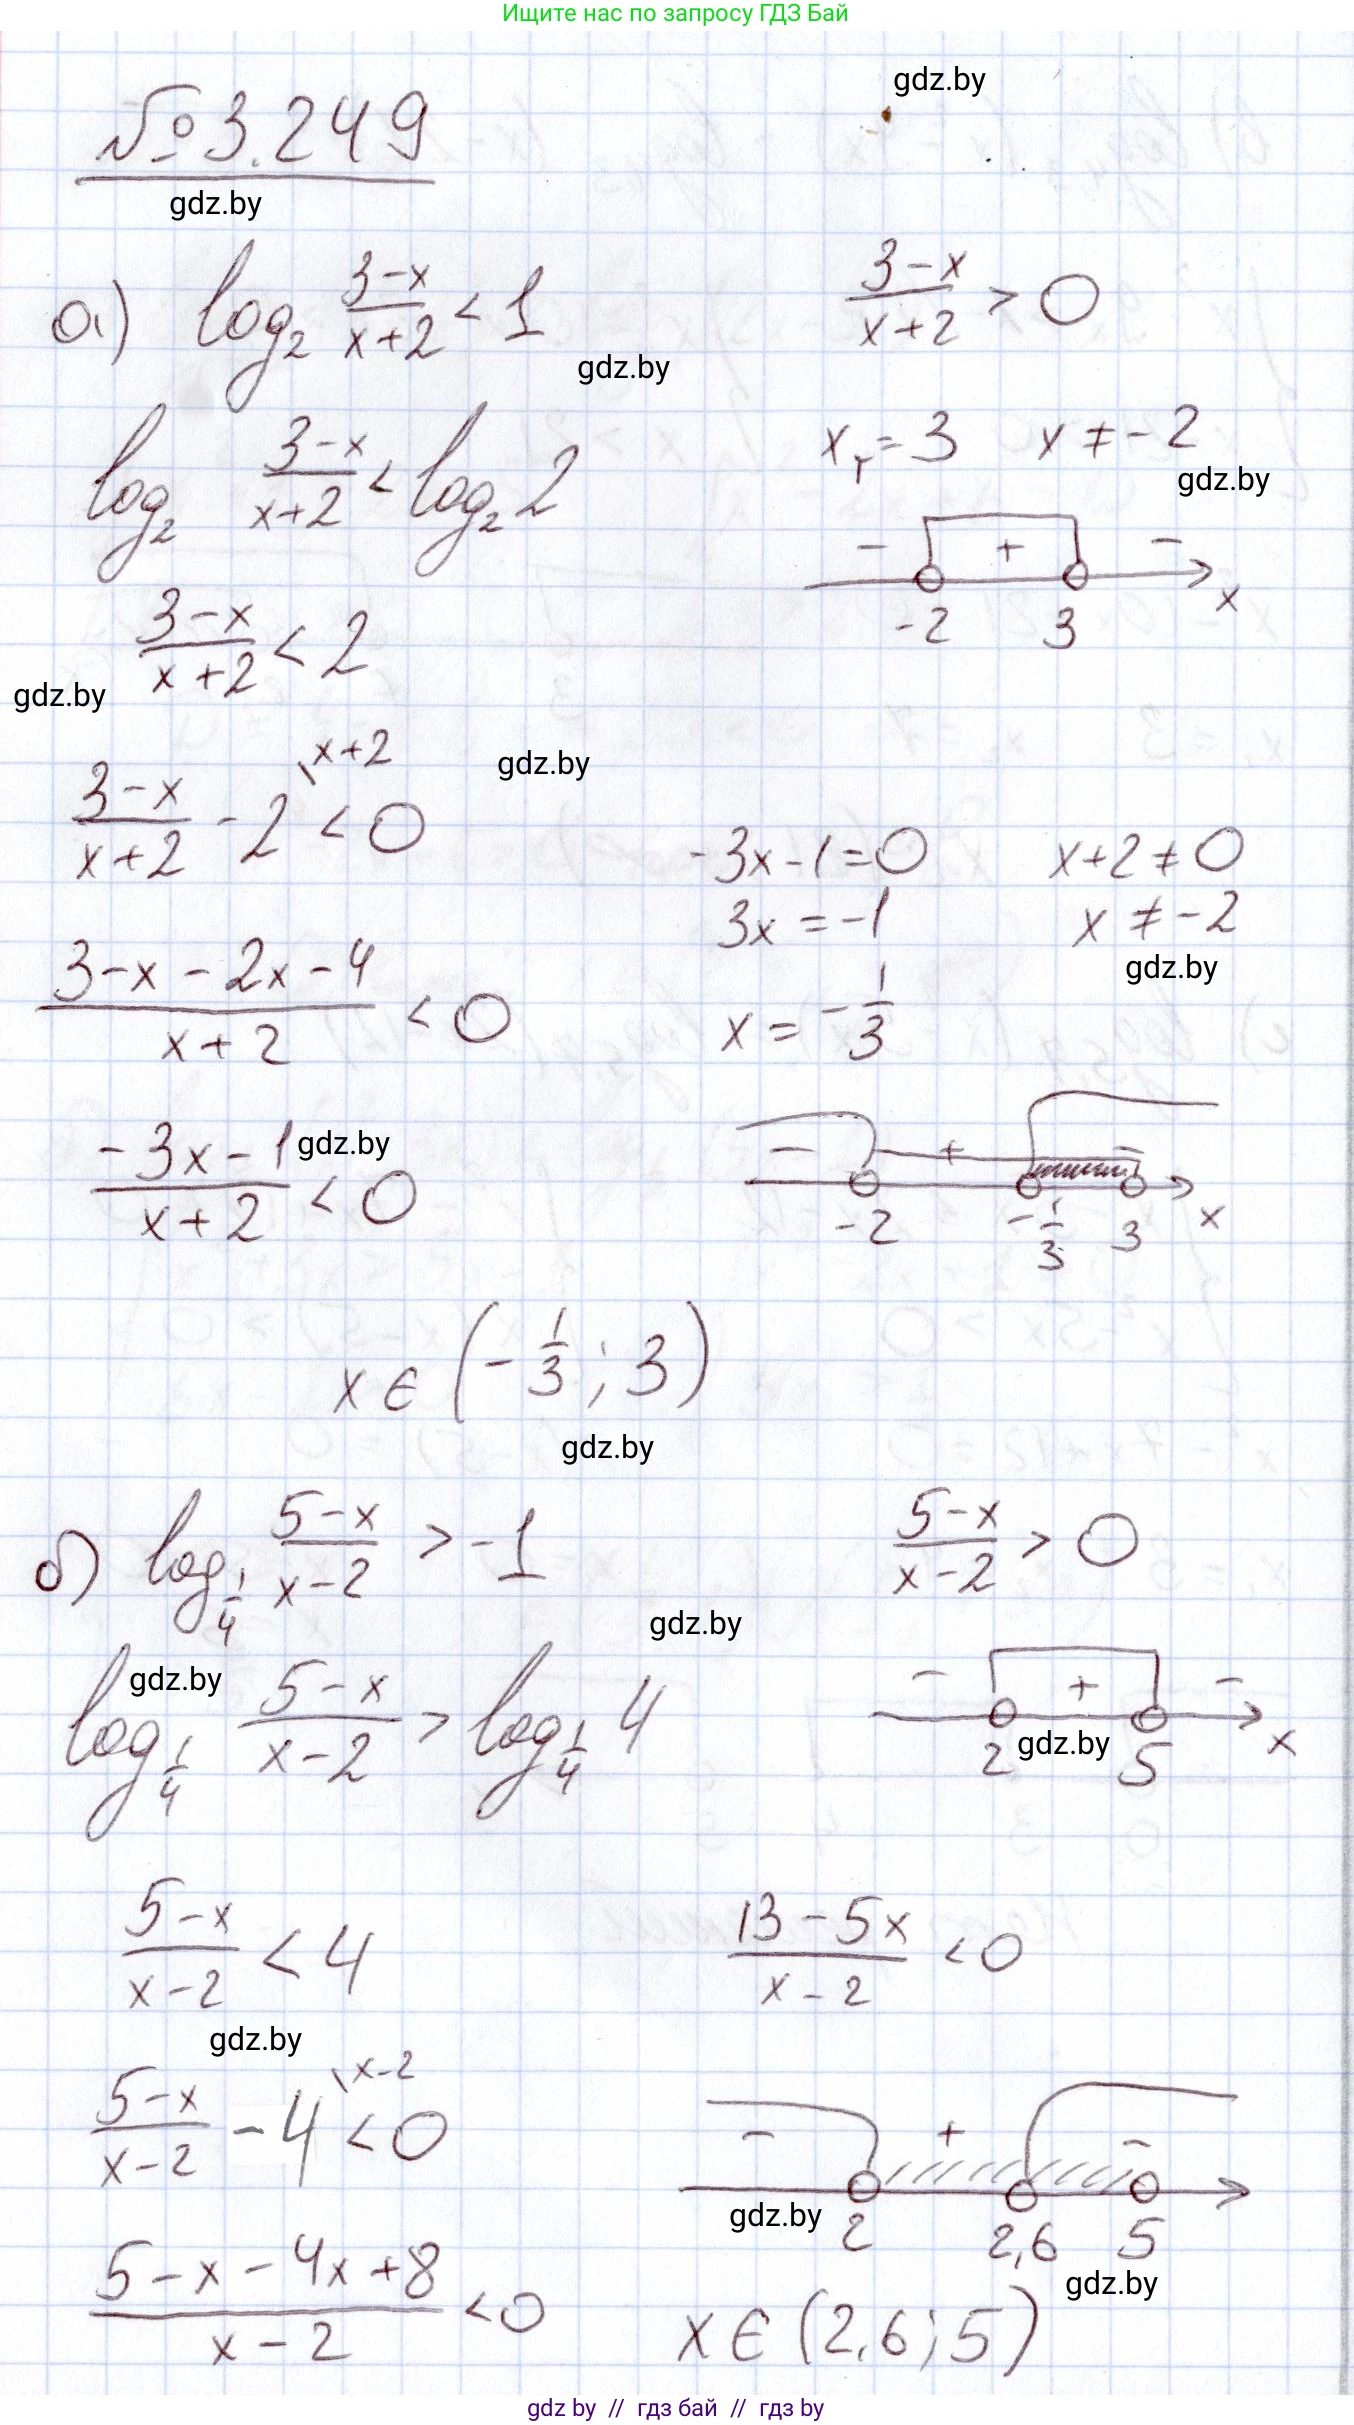 Ищите нас по запросу ГДЗ Бай
gdz.by
№ 3.249
gdz.by
а) log₂ (3-x)/(x+2) < 1
(3-x)/(x+2) > 0
gdz.by
log₂ (3-x)/(x+2) < log₂ 2
xᵣ = 3 x ≠ -2
gdz.by
- + -
-2 3 x
(3-x)/(x+2) < 2
gdz.by
(3-x)/(x+2) - 2 \x+2 < 0
gdz.by
-3x-1=0 x+2 ≠ 0
3x = -1 x ≠ -2
gdz.by
(3-x-2x-4)/(x+2) < 0
x = -1/3
(-3x-1)/(x+2) < 0
gdz.by
- + -
-2 -1/3 3 x
x ∈ (-1/3; 3)
gdz.by
б) log_1/4 (5-x)/(x-2) > -1
(5-x)/(x-2) > 0
gdz.by
gdz.by
log_1/4 (5-x)/(x-2) > log_1/4 4
- + -
2 5 x
gdz.by
(5-x)/(x-2) < 4
(13-5x)/(x-2) < 0
gdz.by
(5-x)/(x-2) - 4 \x-2 < 0
- + -
2 2,6 5
gdz.by
gdz.by
(5-x-4x+8)/(x-2) < 0
x ∈ (2,6; 5)
gdz by // гдз бай // гдз by